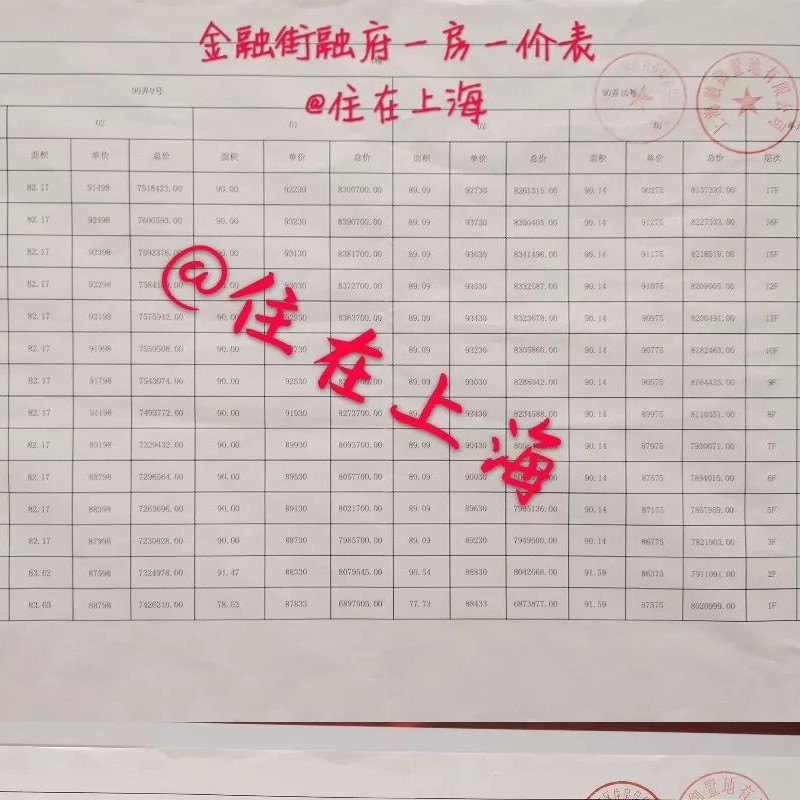 金融街融府一房一价表
@住在上海
90弄9号 90弄10号
02 01 02 01
面积 单价 总价 面积 单价 总价 面积 单价 总价 面积 单价 总价 层次
82.17 91498 7518423.00 90.00 92230 8300700.00 89.09 92730 8261315.00 90.14 90275 8137393.00 17F
82.17 92498 7600593.00 90.00 93230 8390700.00 89.09 93730 8350405.00 90.14 91275 8227533.00 16F
82.17 92398 7592376.00 90.00 93130 8381700.00 89.09 93630 8341496.00 90.14 91175 8218519.00 15F
82.17 92298 90.00 8372700.00 89.09 93530 8332587.00 90.14 91075 8209505.00 12F
82.17 92198 7575942.00 90.00 8363700.00 89.09 93430 8323678.00 90.14 90975 8200491.00 11F
82.17 91998 7559508.00 90.00 89.09 93230 8305860.00 90.14 90775 8182463.00 10F
82.17 91798 7543074.00 90.00 92530 89.09 93030 8288042.00 90.14 90575 8164435.00 9F
82.17 91198 7493772.00 90.00 91930 8273700.00 92430 8234588.00 90.14 89975 8110351.00 8F
82.17 89198 7329432.00 90.00 89930 8093700.00 89.09 90430 90.14 87975 7920071.00 7F
82.17 88798 7296564.00 90.00 89530 8057700.00 89.09 90030 90.14 87575 7894015.00 6F
82.17 88398 7263696.00 90.00 89130 8021700.00 89.09 89630 7985136.00 90.14 87175 7857959.00 5F
82.17 87998 7230828.00 90.00 88730 7985700.00 89.09 89230 7949500.00 90.14 86775 7821903.00 3F
83.62 87598 7324978.00 91.47 88330 8079545.00 90.54 88830 8042668.00 91.59 86375 7911091.00 2F
83.63 88798 7426210.00 78.53 87833 6897505.00 77.73 88433 6873877.00 91.59 87575 8020999.00 1F
@住在上海